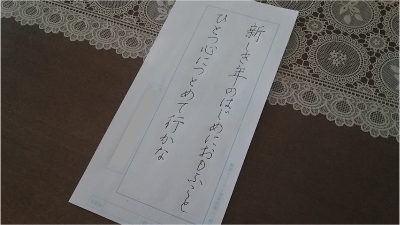 新しき年のはじめにおもふこと
ひとつ心につとめて行かな